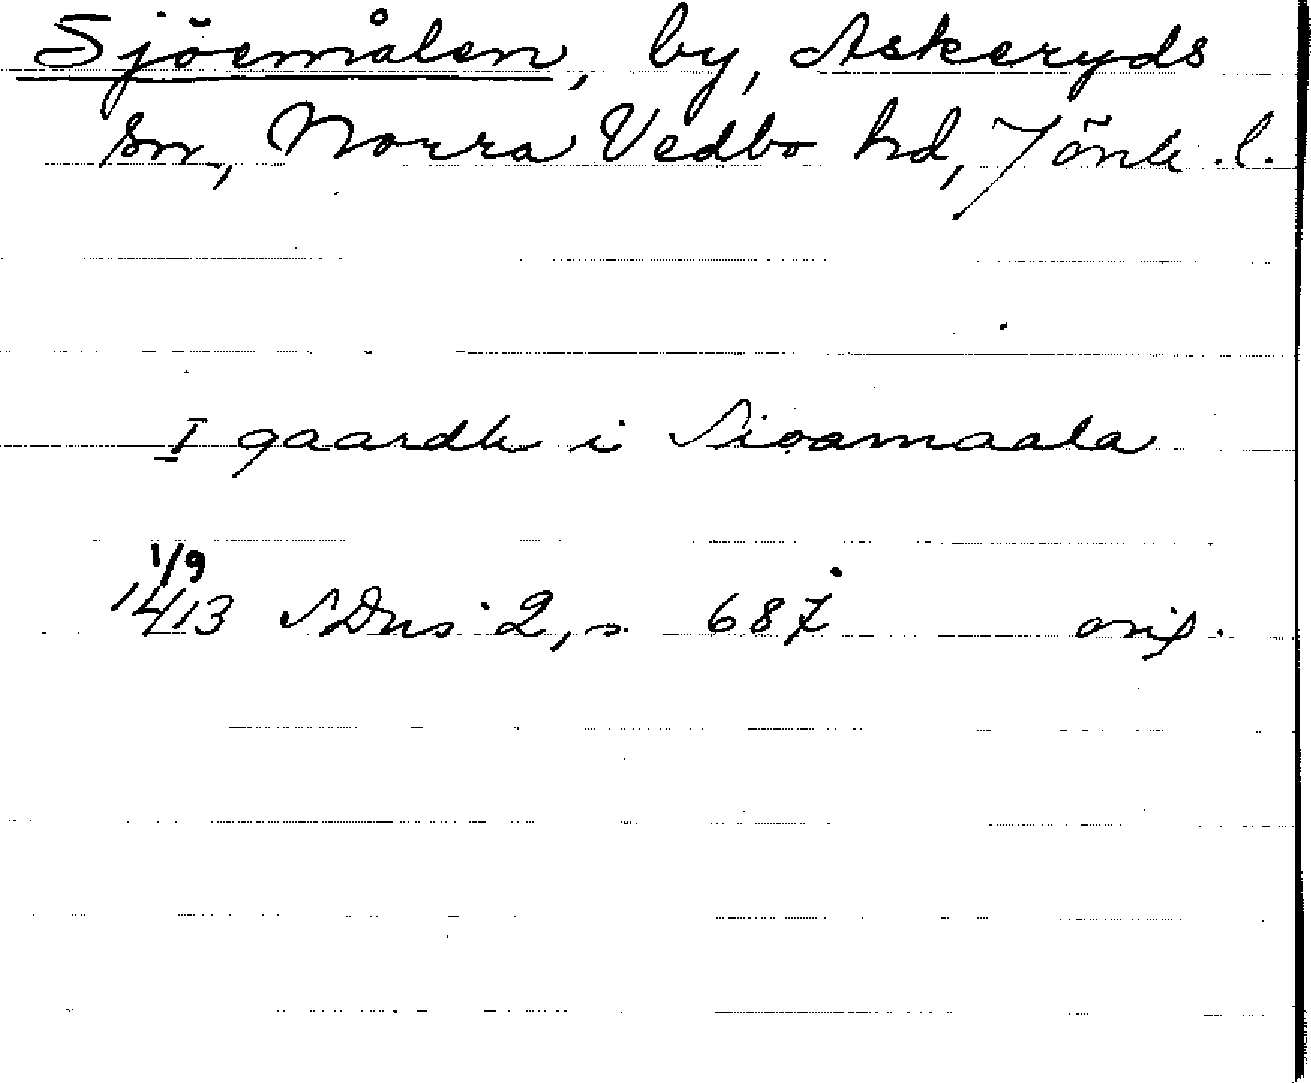 Sjöemålen, by, Askeryds
sn, Norra Vedbo hd, Jönk. l.
I gaardh i Sioamaala
1/9
1413 SDns 2, s. 687 orig.